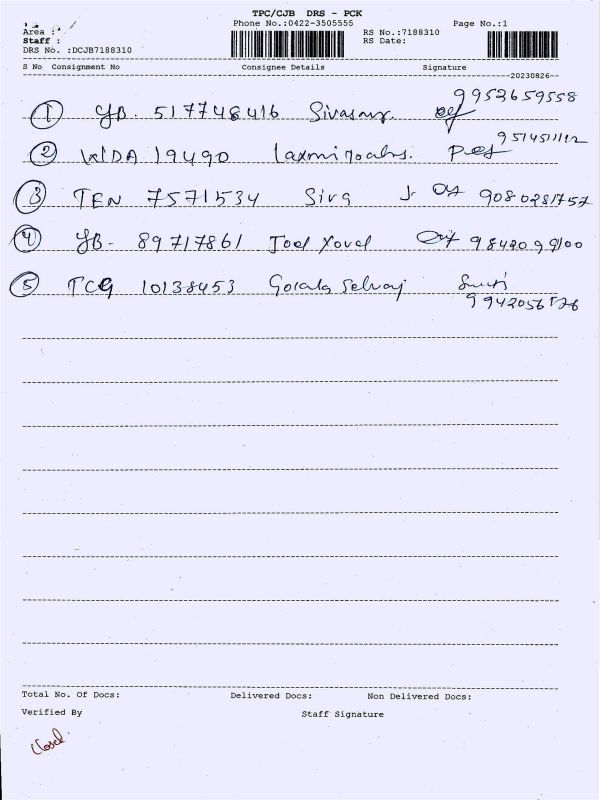 TPC/CJB DRS - PCK
Area : Phone No.:0422-3505555 Page No.:1
Staff : RS No.:7188310
DRS No. :DCJB7188310 RS Date:
S No Consignment No Consignee Details Signature
20230826
9952659558
1 YB. 517748416
9514511112
2 WDA 19490
3 TEN 7571534 Siva 9080281757
4 YB- 89717861 Joel 9842099100
5 TCG 10138453
Total No. Of Docs: Delivered Docs: Non Delivered Docs:
Verified By Staff Signature